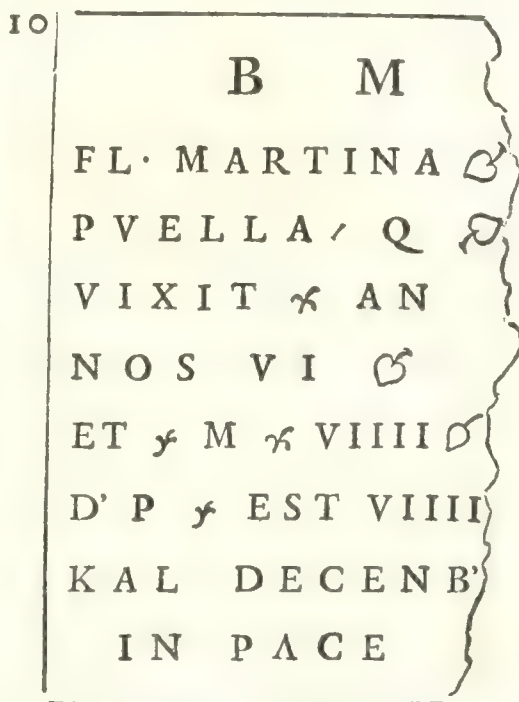 10
B M
FL· MARTINA ❧
PVELLA, Q ❧
VIXIT AN
NOS VI ❧
ET M VIIII ❧
D' P EST VIIII
KAL DECENB'
IN PΛCE